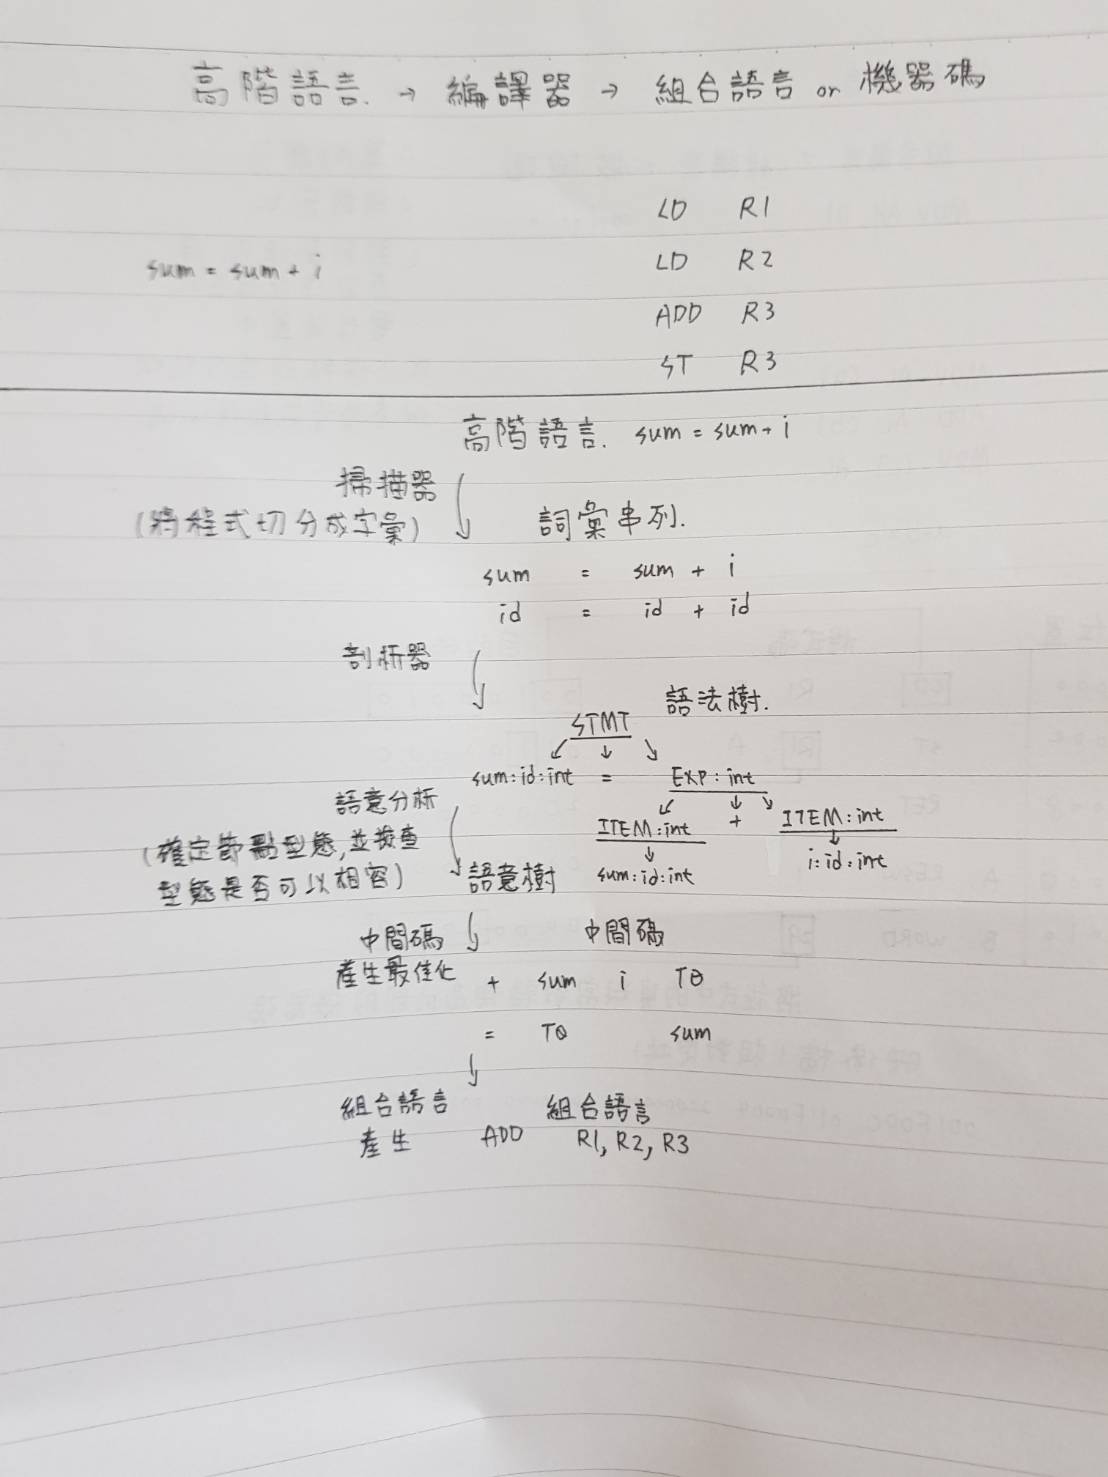 高階語言. → 編譯器 → 組合語言 or 機器碼
LD R1
sum = sum + i
LD R2
ADD R3
ST R3
高階語言. sum = sum + i
掃描器
(將程式切分成字彙)
詞彙串列.
sum = sum + i
id = id + id
剖析器
語法樹.
STMT
sum:id:int = EXP:int
ITEM:int + ITEM:int
sum:id:int i:id:int
語意分析
(確定節點型態,並檢查
型態是否可以相容)
語意樹
中間碼 中間碼
產生最佳化 + sum i T0
= T0 sum
組合語言 組合語言
產生 ADD R1, R2, R3